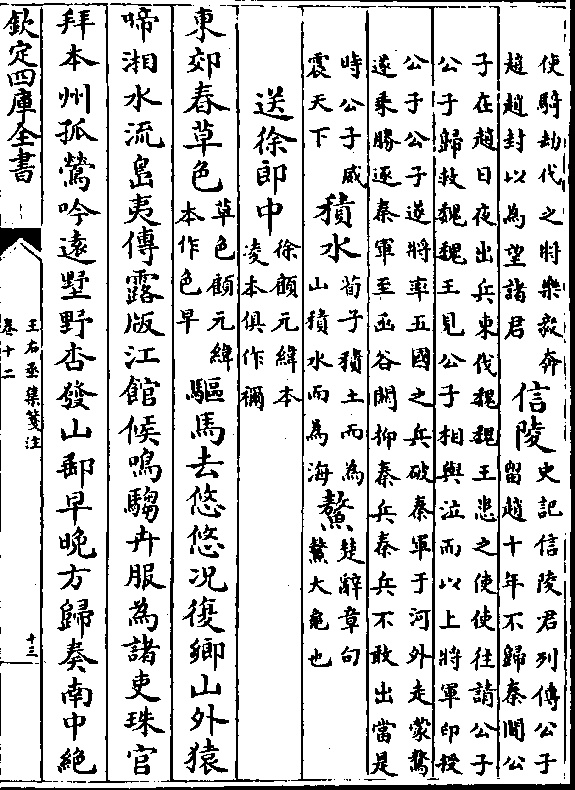 使騎劫代之將樂毅奔
趙趙封以為望諸君
信陵
史記信陵君列傳公子
留趙十年不歸秦聞公
子在趙日夜出兵東伐魏魏王患之使使往請公子
公子歸救魏魏王見公子相與泣而以上將軍印授
公子公子遂將率五國之兵破秦軍于河外走蒙驁
遂乘勝逐秦軍至函谷關抑秦兵秦兵不敢出當是
時公子威
震天下
積水
荀子積土而為
山積水而為海
鰲
楚辭章句
鰲大龜也
送徐郎中
徐顧元緯本
凌本俱作禰
東郊春草色
草色顧元緯
本作色早
驅馬去悠悠况復鄉山外猿
啼湘水流島夷傳露版江館候鳴騶卉服為諸吏珠官
拜本州孤鶯吟遠墅野杏發山郵早晚方歸奏南中絶
欽定四庫全書
王右丞集箋注
卷十二
十三